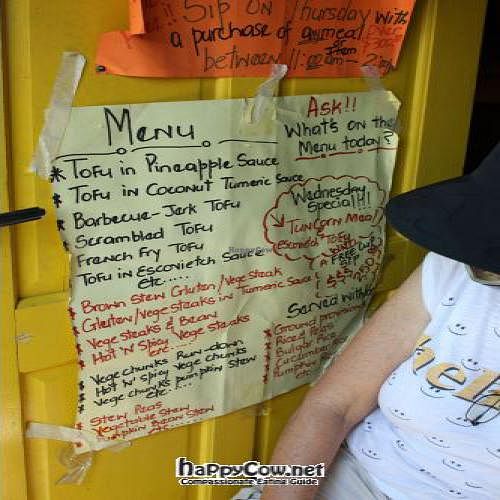 Sip On Thursday With
a purchase of any meal
or Item
between 11:00am – 2
Menu
* Tofu in Pineapple Sauce
* Tofu in Coconut Tumeric Sauce
* Barbecue-Jerk Tofu
* Scrambled Tofu
French Fry Tofu
Tofu in Escovietch Sauce
Etc.....
* Brown Stew Gluten/Vege Steak
* Gluten/Vege Steaks in Tumeric Sauce
* Vege Steaks & Bean
* Hot N' Spicy Vege Steaks
Etc
* Vege Chunks Run-down
* Hot N' Spicy Vege Chunks
* Vege Chunks Pumpkin Stew
Etc....
* Stew Peas
* Vegetable Stew
* Pumpkin Bean Stew
Ask!!
What's on the
Menu today?
Wednesday
Special!!!
Tuncorn Meal
Escovietch Tofu
Served With
* Ground provision
* Rice & Peas
* Bulgur Rice
* Cucumber
* Pumpkin
Etc
HappyCow.net
Compassionate Eating Guide